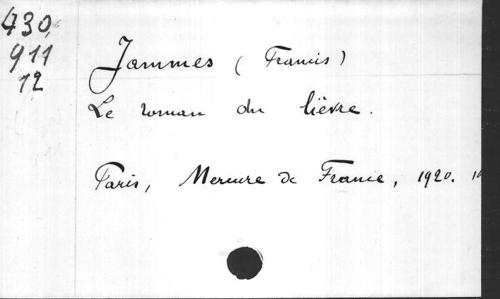 430,
911
12
Jammes (Francis)
Le roman du lièvre.
Paris, Mercure de France, 1920.